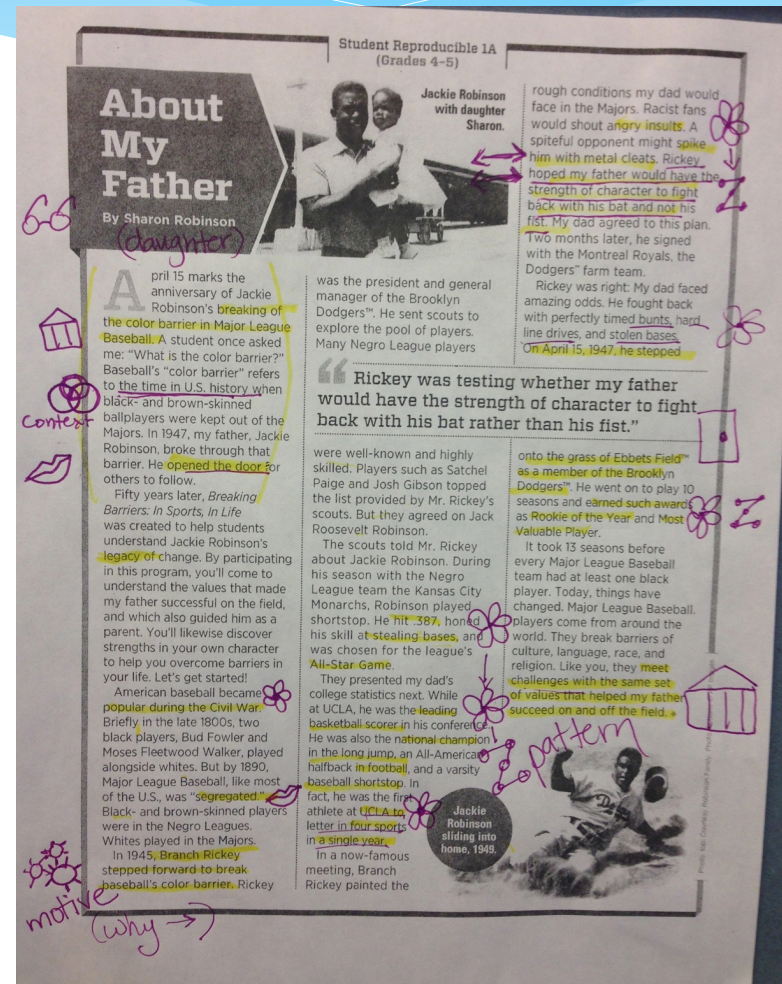 Student Reproducible 1A
(Grades 4–5)
About
My
Father
By Sharon Robinson
(daughter)
6-6
Jackie Robinson
with daughter
Sharon.
April 15 marks the
anniversary of Jackie
Robinson's breaking of
the color barrier in Major League
Baseball. A student once asked
me: “What is the color barrier?”
Baseball's “color barrier” refers
to the time in U.S. history when
black- and brown-skinned
ballplayers were kept out of the
Majors. In 1947, my father, Jackie
Robinson, broke through that
barrier. He opened the door for
others to follow.
context
Fifty years later, Breaking
Barriers: In Sports, In Life
was created to help students
understand Jackie Robinson's
legacy of change. By participating
in this program, you'll come to
understand the values that made
my father successful on the field,
and which also guided him as a
parent. You'll likewise discover
strengths in your own character
to help you overcome barriers in
your life. Let's get started!
American baseball became
popular during the Civil War.
Briefly in the late 1800s, two
black players, Bud Fowler and
Moses Fleetwood Walker, played
alongside whites. But by 1890,
Major League Baseball, like most
of the U.S., was “segregated.”
Black- and brown-skinned players
were in the Negro Leagues.
Whites played in the Majors.
In 1945, Branch Rickey
stepped forward to break
baseball's color barrier. Rickey
motive
(why →)
was the president and general
manager of the Brooklyn
Dodgers™. He sent scouts to
explore the pool of players.
Many Negro League players
“ Rickey was testing whether my father
would have the strength of character to fight
back with his bat rather than his fist.”
were well-known and highly
skilled. Players such as Satchel
Paige and Josh Gibson topped
the list provided by Mr. Rickey's
scouts. But they agreed on Jack
Roosevelt Robinson.
The scouts told Mr. Rickey
about Jackie Robinson. During
his season with the Negro
League team the Kansas City
Monarchs, Robinson played
shortstop. He hit .387, honed
his skill at stealing bases, and
was chosen for the league's
All-Star Game.
They presented my dad's
college statistics next. While
at UCLA, he was the leading
basketball scorer in his conference.
He was also the national champion
in the long jump, an All-American
halfback in football, and a varsity
baseball shortstop. In
fact, he was the first
athlete at UCLA to
letter in four sports
in a single year.
In a now-famous
meeting, Branch
Rickey painted the
rough conditions my dad would
face in the Majors. Racist fans
would shout angry insults. A
spiteful opponent might spike
him with metal cleats. Rickey
hoped my father would have the
strength of character to fight
back with his bat and not his
fist. My dad agreed to this plan.
Two months later, he signed
with the Montreal Royals, the
Dodgers™ farm team.
Rickey was right: My dad faced
amazing odds. He fought back
with perfectly timed bunts, hard
line drives, and stolen bases.
On April 15, 1947, he stepped
onto the grass of Ebbets Field™
as a member of the Brooklyn
Dodgers™. He went on to play 10
seasons and earned such awards
as Rookie of the Year and Most
Valuable Player.
It took 13 seasons before
every Major League Baseball
team had at least one black
player. Today, things have
changed. Major League Baseball
players come from around the
world. They break barriers of
culture, language, race, and
religion. Like you, they meet
challenges with the same set
of values that helped my father
succeed on and off the field.
pattern
Jackie
Robinson
sliding into
home, 1949.